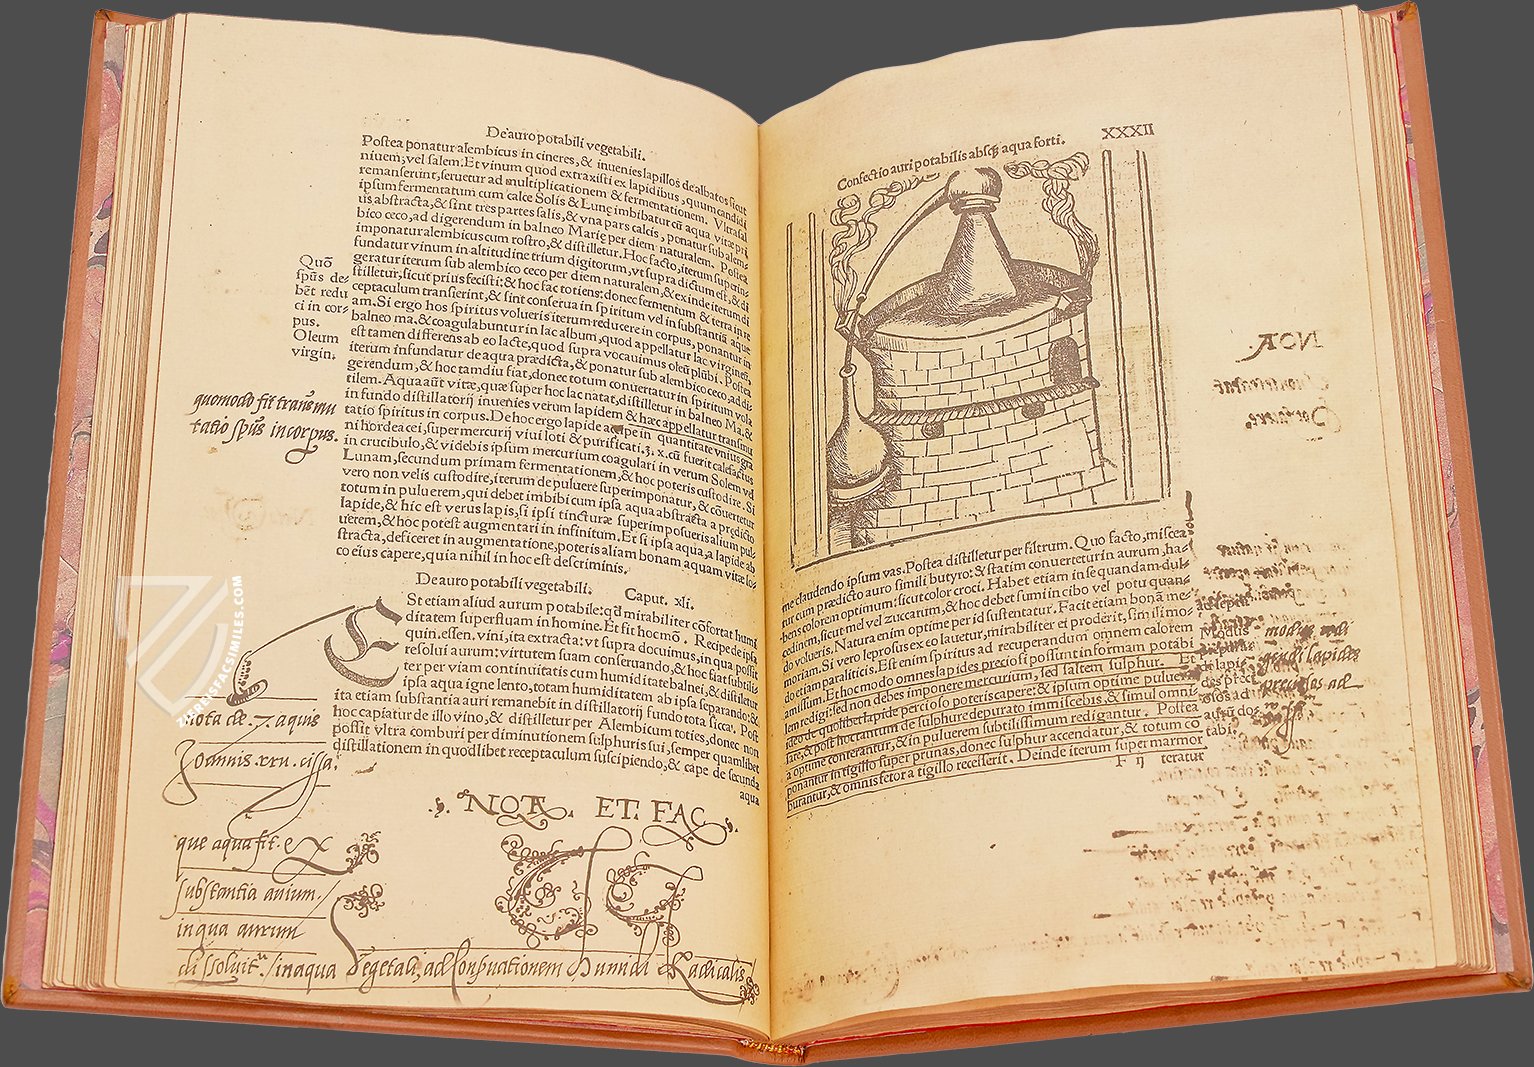 De auro potabili vegetabili.
Postea ponatur alembicus in cineres, & inuenies lapillos de albatos sicut
niuem, vel salem: Et vinum quod extraxisti ex lapidibus, quum candidi
remanserint, seruetur ad multiplicationem & fermentationem. Vltra
ipsum fermentatum cum calce Solis & Lunę imbibatur cũ aqua vitæ pri
us abstracta, & sint tres partes salis, & vna pars calcis, ponatur sub alem-
bico ceco, ad digerendum in balneo Marię per diem naturalem. Postea
imponatur alembicus cum rostro, & distilletur. Hoc facto, iterum superin-
fundatur vinum in altitudine trium digitorum, vt supra dictum est, & di
geratur iterum sub alembico ceco per diem naturalem, & exinde iterum di
stilletur, sicut prius fecisti: & hoc fac totiens: donec fermentum & terra in re
ceptaculum transierint, & sint conserua in spiritum vel in substantiã aquę
am. Si ergo hos spiritus volueris iterum reducere in corpus, ponantur in
balneo ma. & coagulabuntur in lac album, quod appellatur lac virginis,
est tamen differens ab eo lacte, quod supra vocauimus oleũ plũbi. Postea
iterum infundatur de aqua prædicta, & ponatur sub alembico ceco, ad di-
gerendum, & hoc tamdiu fiat, donec totum conuertatur in spiritum vola
tilem. Aqua aut vitæ, quæ super hoc lac natat, distilletur in balneo Ma. &
in fundo distillatorij inuenies verum lapidem & hæc appellatur transmu
tatio spiritus in corpus. De hoc ergo lapide accipe in quantitate vnius gra
ni hordeacei, super mercurij viui loti & purificati. ʒ. x. cũ fuerit calefactus
in crucibulo, & videbis ipsum mercurium coagulari in verum Solem vel
Lunam, secundum primam fermentationem, & hoc poteris custodire. Si
vero non velis custodire, iterum de puluere superimponatur, & cõuertetur
totum in puluerem, qui debet imbibi cum ipsa aqua abstracta a prędicto
lapide, & hic est verus lapis, si ipsi tincturæ superimposueris alium pul-
uerem, & hoc potest augmentari in infinitum. Et si ipsa aqua, a lapide ab
stracta, deficeret in augmentatione, poteris aliam bonam aquam vitæ lo-
co eius capere, quia nihil in hoc est descriminis.
Quõ
spũs de-
bẽt redu
ci in cor-
pus.
Oleum
virgin.
quomodo fit transmu
tatio spũs in corpus.
De auro potabili vegetabili. Caput. xli.
ESt etiam aliud aurum potabile: qđ mirabiliter cõfortat humi
ditatem superfluam in homine. Et fit hoc mõ. Recipe de ipsa
quin. essen. vini, ita extracta: vt supra docuimus, in qua possit
resolui aurum: virtutem suam conseruando, & hoc fiat subtili-
ter per viam continuitatis cum humiditate balnei, & distilletur
ipsa aqua igne lento, totam humiditatem ab ipsa separando: &
ita etiam substantia auri remanebit in distillatorij fundo tota sicca. Post
hoc capiatur de illo vino, & distilletur per Alembicum toties, donec non
possit vltra comburi per diminutionem sulphuris sui, semper quamlibet
distillationem in quodlibet receptaculum suscipiendo, & cape de secunda
aqua
nota de. 7. aquis
Joannis. xxij. cissa.
NOTA. ET. FAC
que aqua fit. ex
substantia auium./
in qua aurum
dissoluitur./ in aqua Vegetali, ad Conseruationem Humidi Radicalis
XXXII
Confectio auri potabilis absq; aqua forti.
me claudendo ipsum vas. Postea distilletur per filtrum. Quo facto, miscea
tur cum prædicto auro simili butyro: & statim conuertetur in aurum, ha-
bens colorem optimum: sicut color croci. Habet etiam in se quandam dul-
cedinem, sicut mel vel zuccarum, & hoc debet sumi in cibo vel potu quan-
do volueris. Natura enim optime per id sustentatur. Facit etiam bonã me-
moriam. Si vero leprosus ex eo lauetur, mirabiliter ei proderit, simili mo-
do etiam paraliticis. Est enim spiritus ad recuperandum omnem calorem
amissum. Et hoc modo omnes lapides preciosi possunt in formam potabi
lem redigi: sed non debes imponere mercurium, sed saltem sulphur. Et
ideo de quolibet lapide percioso poteris capere: & ipsum optime puluerę
sare, & post hoc tantum de sulphure depurato immiscebis, & simul omni-
a optime conterantur, & in puluerem subtilissimum redigantur. Postea
ponantur in tigillo super prunas, donec sulphur accendatur, & totum cõ
burantur, & omnis fetor a tigillo recesserit. Deinde iterum super marmor
F ij teratur
Modus
lapi-
des preci
osos ad
aurũ do-
tabi.
modus redi
gendi lapides
preciosos ad
ZIEREISFACSIMILES.COM